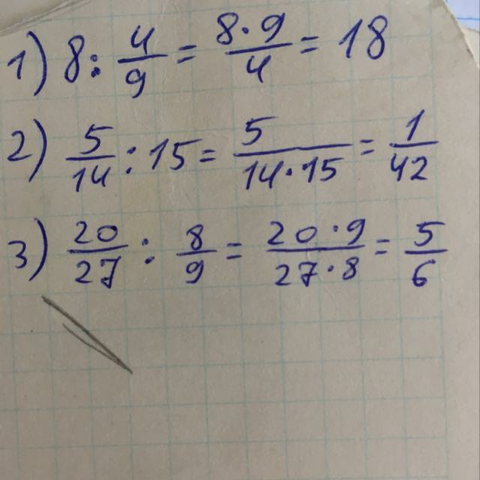 1) 8 : 4/9 = 8·9/4 = 18
2) 5/14 : 15 = 5/14·15 = 1/42
3) 20/27 : 8/9 = 20·9/27·8 = 5/6